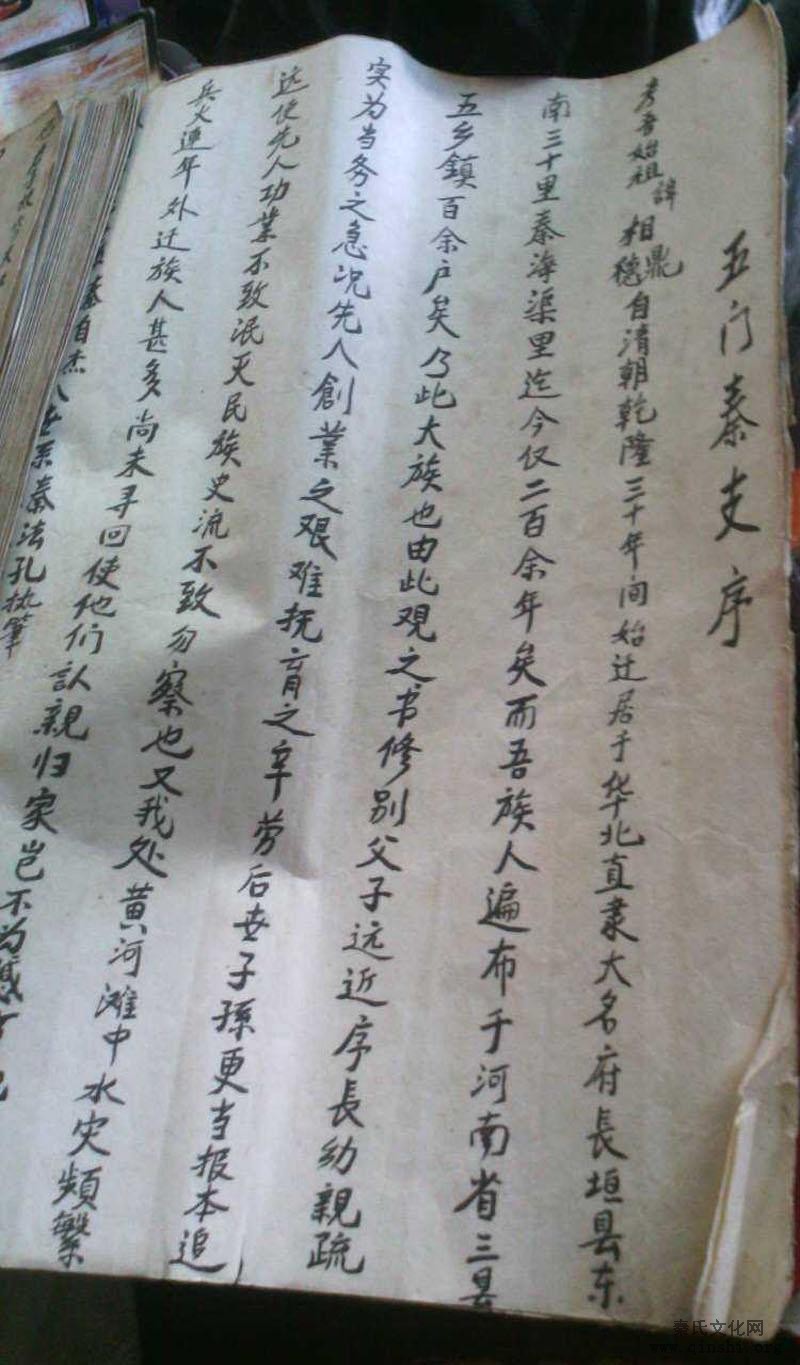 五门秦支序
考吾始祖諱相鼎穩自清朝乾隆三十年间始迁居于华北直隶大名府長垣县东
南三十里秦海渠里迄今仅二百余年矣而吾族人遍布于河南省三县
五乡鎮百余户矣乃此大族也由此观之书修别父子远近序長幼親疏
实为当务之急况先人創業之艰难抚育之辛劳后世子孫更当报本追
远使先人功業不致泯灭民族史流不致勿察也又我处黄河滩中水灾頻繁
兵火連年外迁族人甚多尚未寻回使他们認親归家岂不为
秦自杰八世系秦法孔执筆
秦氏文化网